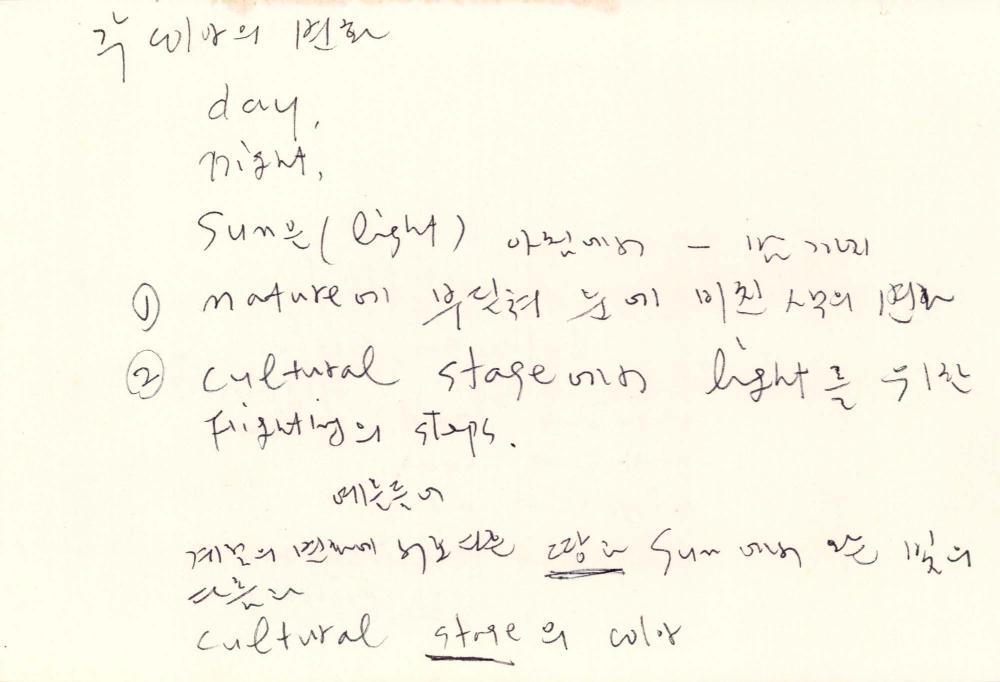 각 color의 변화
day,
night,
Sun은 (light) 아침에서 – 밤까지
① nature에 부딛쳐 눈에 미친 색의 변화
② cultural stage에서 light를 위한
Fighting의 steps.
예를들어
계절의 변화에 땅과 Sun에서 오는 빛의
다름과
cultural stage의 color